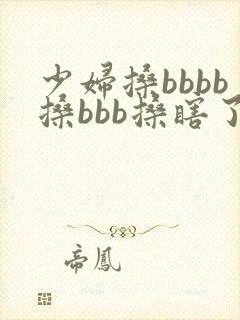 少婦搡bbbb
搡bbb搡瞎了
帝鳳